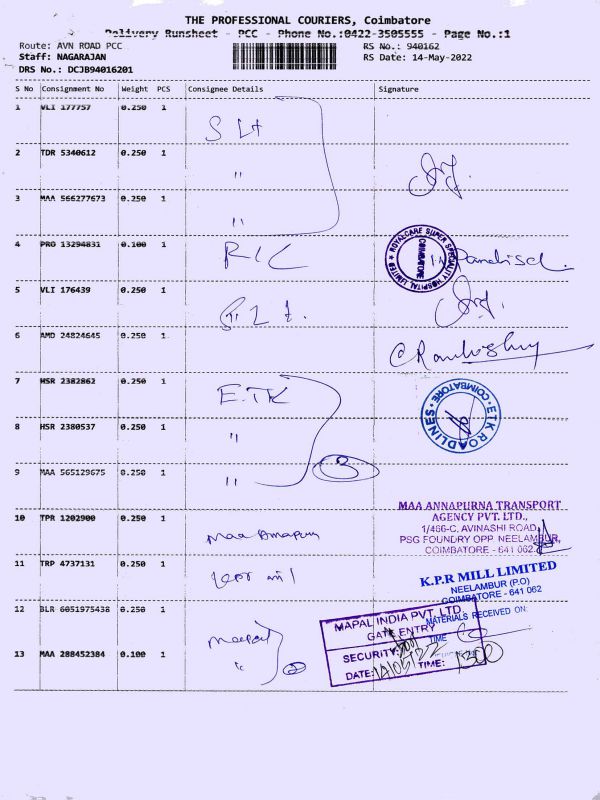 THE PROFESSIONAL COURIERS, Coimbatore
Delivery Runsheet - PCC - Phone No.:0422-3505555 - Page No.:1
Route: AVN ROAD PCC
RS No.: 940162
Staff: NAGARAJAN
RS Date: 14-May-2022
DRS No.: DCJB94016201
S No Consignment No Weight PCS Consignee Details Signature
1 VLI 177757 0.250 1
S LH
2 TDR 5340612 0.250 1
"
3 MAA 566277673 0.250 1
"
4 PRO 13294831 0.100 1
ROYALCARE SUPER SPECIALITY HOSPITAL LIMITED
COIMBATORE
5 VLI 176439 0.250 1
6 AMD 24824645 0.250 1
7 HSR 2382862 0.250 1
ETK
ETK ROADLINES * COIMBATORE *
8 HSR 2380537 0.250 1
"
9 MAA 565129675 0.250 1
" 3
10 TPR 1202900 0.250 1
Maa
MAA ANNAPURNA TRANSPORT
AGENCY PVT. LTD.,
1/466-C, AVINASHI ROAD,
PSG FOUNDRY OPP. NEELAMBUR,
COIMBATORE - 641 062.
11 TRP 4737131 0.250 1
K.P.R MILL LIMITED
NEELAMBUR (P.O)
COIMBATORE - 641 062
12 BLR 6051975438 0.250 1
MATERIALS RECEIVED ON:
TIME
MAPAL INDIA PVT. LTD.
GATE ENTRY
13 MAA 288452384 0.100 1
" 2
SECURITY:
DATE: 14/05/22 TIME: 1300